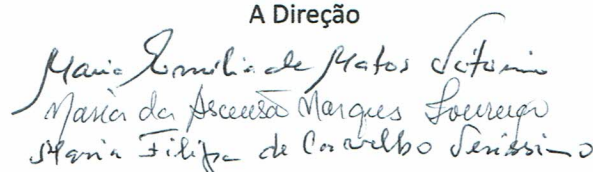 A Direção
Maria Emília de Matos Vitorino
Maria da Ascensão Marques Lourenço
Maria Filipa de Carvalho Veríssimo